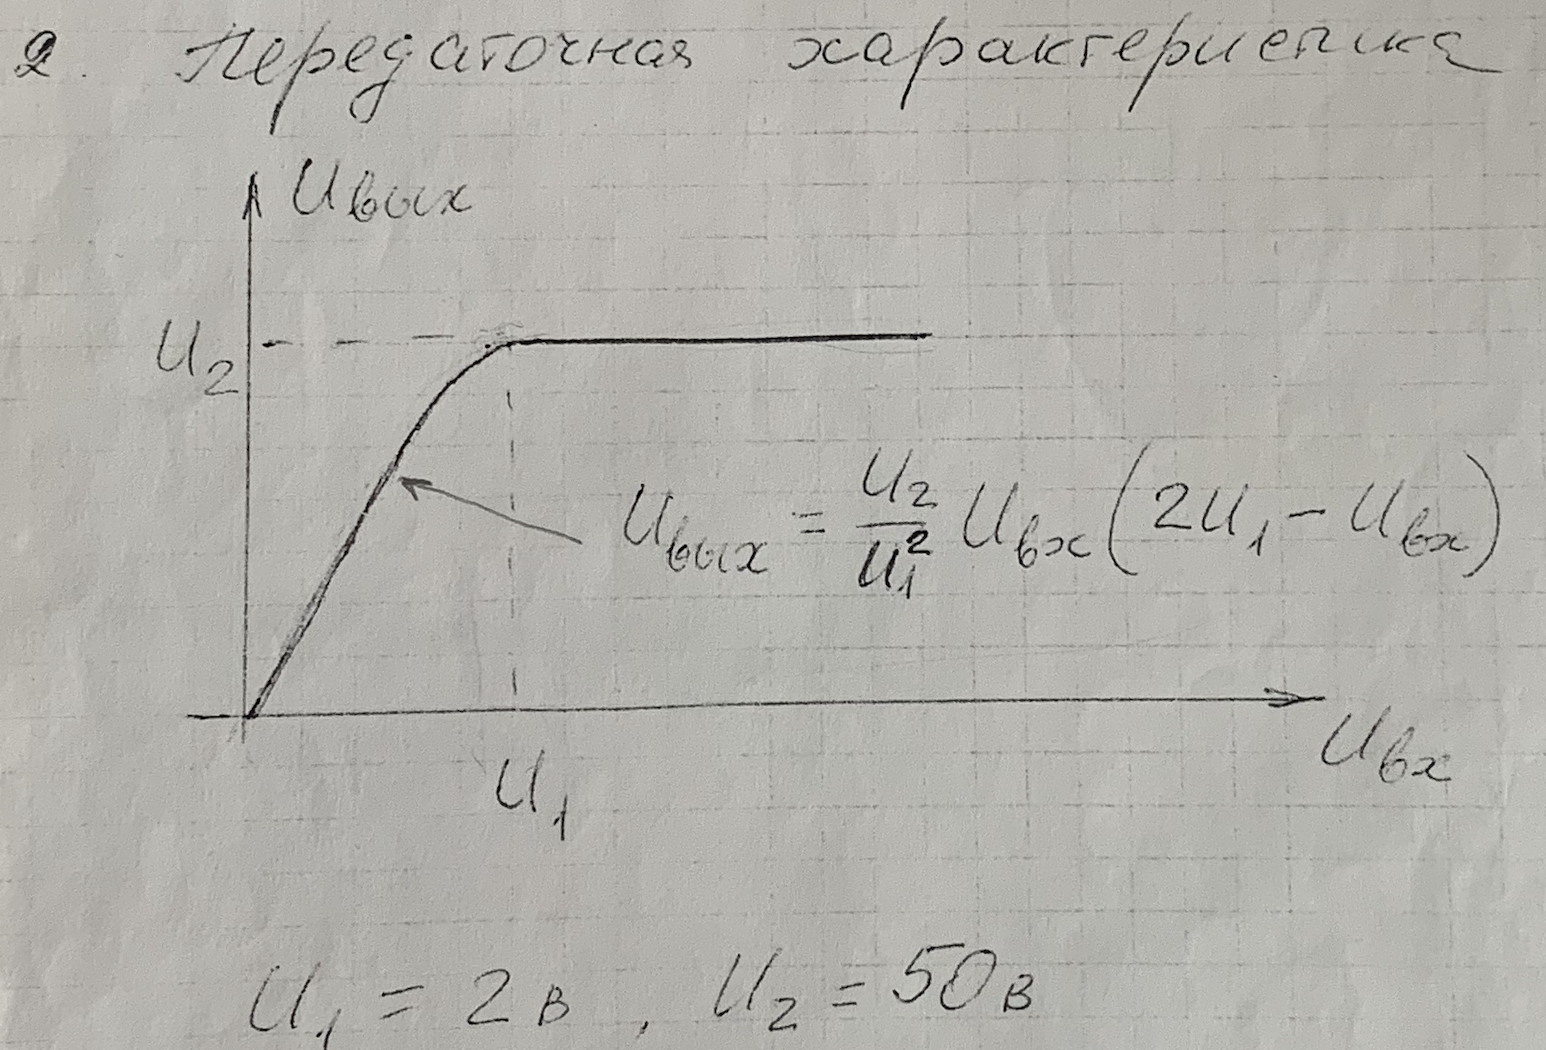 2. Передаточная характеристика
Uвых
U₂
Uвых = U₂/U₁² Uвх (2U₁ - Uвх)
Uвх
U₁
U₁ = 2в, U₂ = 50в